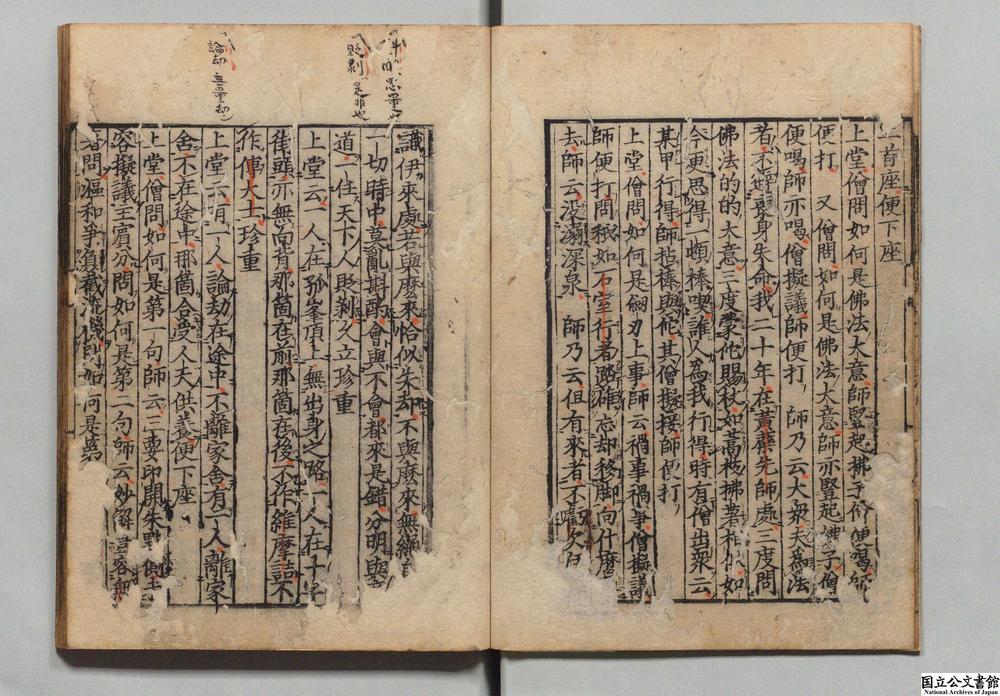 首座便下座
上堂僧問如何是佛法大意師豎起拂子僧便喝師
便打 又僧問如何是佛法大意師亦豎起拂子僧
便喝師亦喝僧擬議師便打 師乃云大衆夫為法
者不避喪身失命我二十年在黃蘗先師處三度問
佛法的的大意三度蒙他賜杖如蒿枝拂著相似如
今更思得一頓棒喫誰人為我行得時有僧出衆云
某甲行得師拈棒與他其僧擬接師便打
上堂僧問如何是劒刃上事師云禍事禍事僧擬議
師便打問秪如石室行者踏碓忘却移脚向什麽
去師云没溺深泉 師乃云但有來者不虧欠伊
識伊來處若與麽來恰似失却不與麽來無繩
一切時中莫亂斟酌會與不會都來是錯分明與
道一任天下人貶剝久立珍重
上堂云一人在孤峯頂上無出身之路一人在十字
街頭亦無向背那箇在前那箇在後不作維摩詰不
作傅大士珍重
上堂云有一人論劫在途中不離家舍有一人離家
舍不在途中那箇合受人天供養便下座
上堂僧問如何是第一句師云三要印開朱點側未
容擬議主賓分問如何是第二句師云妙解豈容無
著問漚和爭負截流機問如何是第
貶剝 是非也
論劫 無量劫
国立公文書館
National Archives of Japan